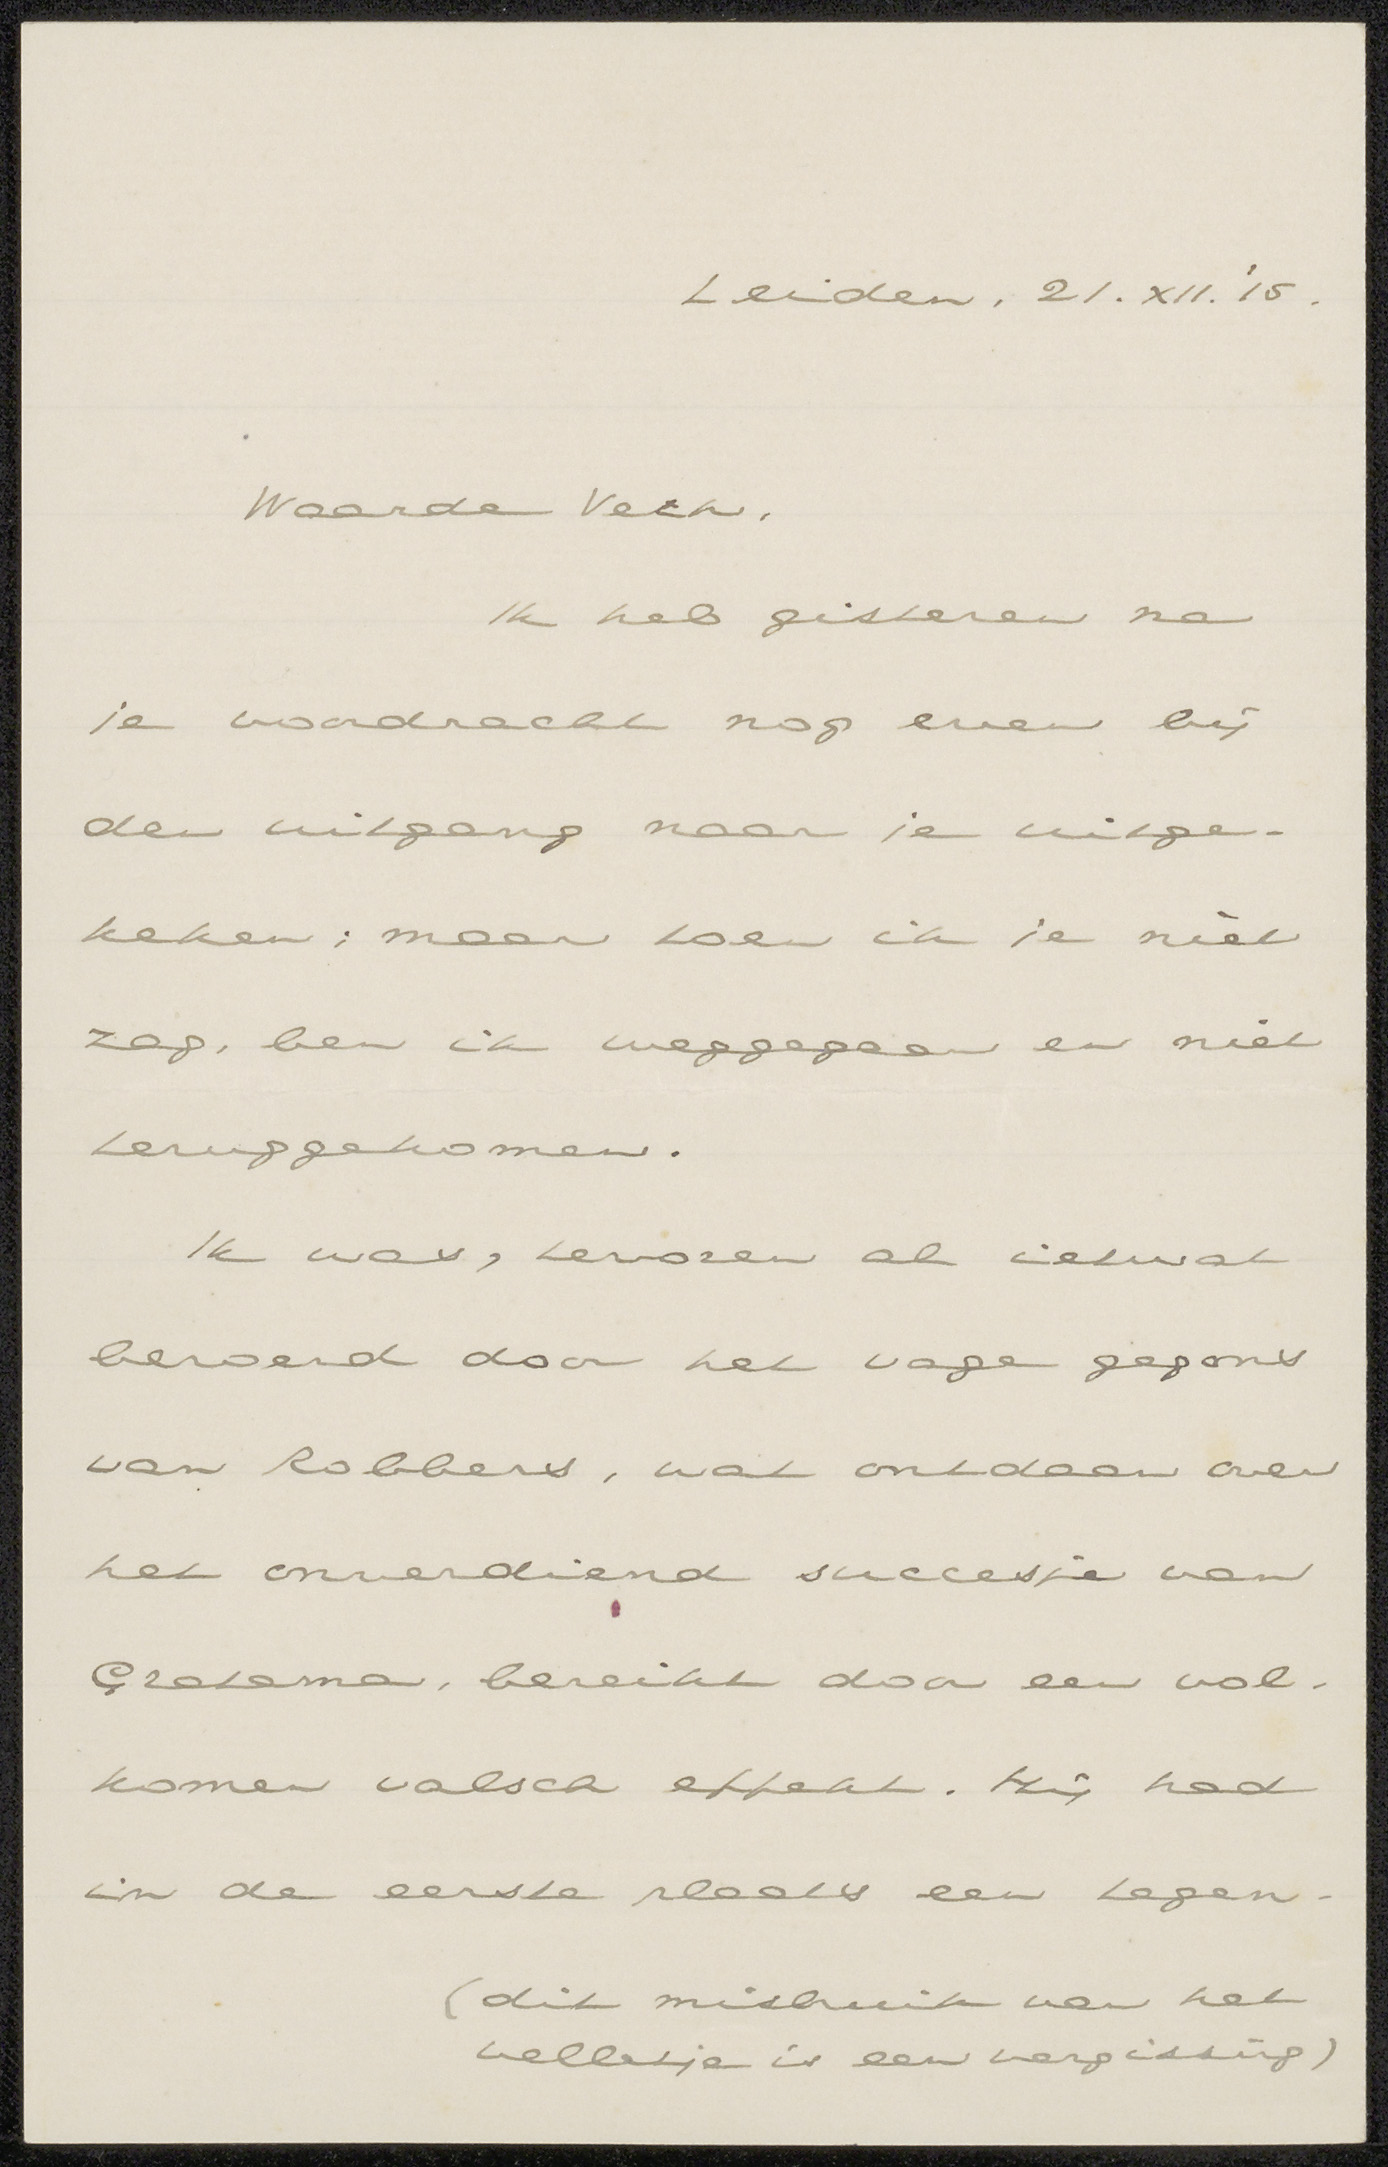 Leiden, 21.XII.'15.
Waarde Veth,
Ik heb gisteren na
je voordracht nog even bij
den uitgang naar je uitge-
keken; maar toen ik je niet
zag, ben ik weggegaan en niet
teruggekomen.
Ik was, tevoren al ietwat
beroerd door het vage gegons
van Robbers, wat ontdaan over
het onverdiend succesje van
Gratama, bereikt door een vol-
komen valsch effekt. Hij had
in de eerste plaats een tegen-
(dit misbruik van het
velletje is een vergissing)